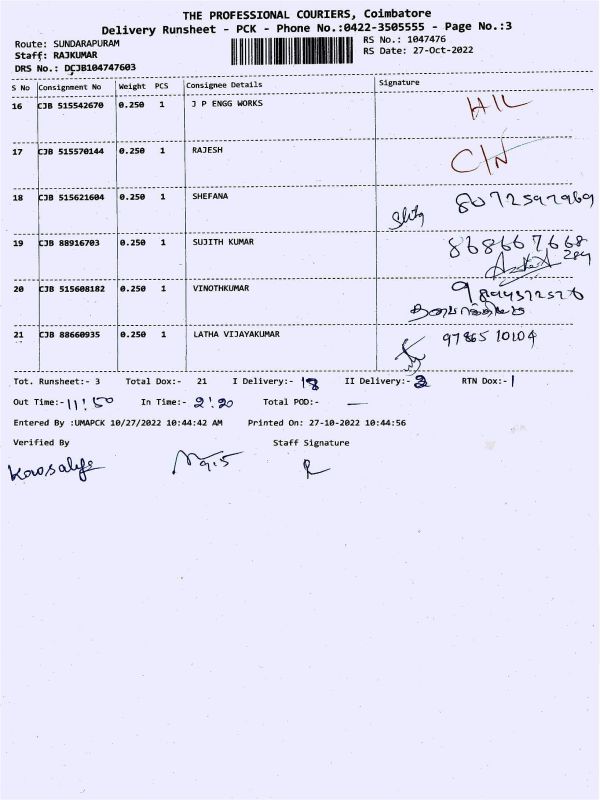 THE PROFESSIONAL COURIERS, Coimbatore
Delivery Runsheet - PCK - Phone No.:0422-3505555 - Page No.:3
Route: SUNDARAPURAM
RS No.: 1047476
Staff: RAJKUMAR
RS Date: 27-Oct-2022
DRS No.: DCJB104747603
S No Consignment No Weight PCS Consignee Details Signature
16 CJB 515542670 0.250 1 J P ENGG WORKS H/L
17 CJB 515570144 0.250 1 RAJESH C/N
18 CJB 515621604 0.250 1 SHEFANA 8072592969
19 CJB 88916703 0.250 1 SUJITH KUMAR
20 CJB 515608182 0.250 1 VINOTHKUMAR
21 CJB 88660935 0.250 1 LATHA VIJAYAKUMAR 97865 10104
Tot. Runsheet:- 3 Total Dox:- 21 I Delivery:- 18 II Delivery:- RTN Dox:- 1
Out Time:- 11:50 In Time:- 2:20 Total POD:- —
Entered By :UMAPCK 10/27/2022 10:44:42 AM Printed On: 27-10-2022 10:44:56
Verified By Staff Signature